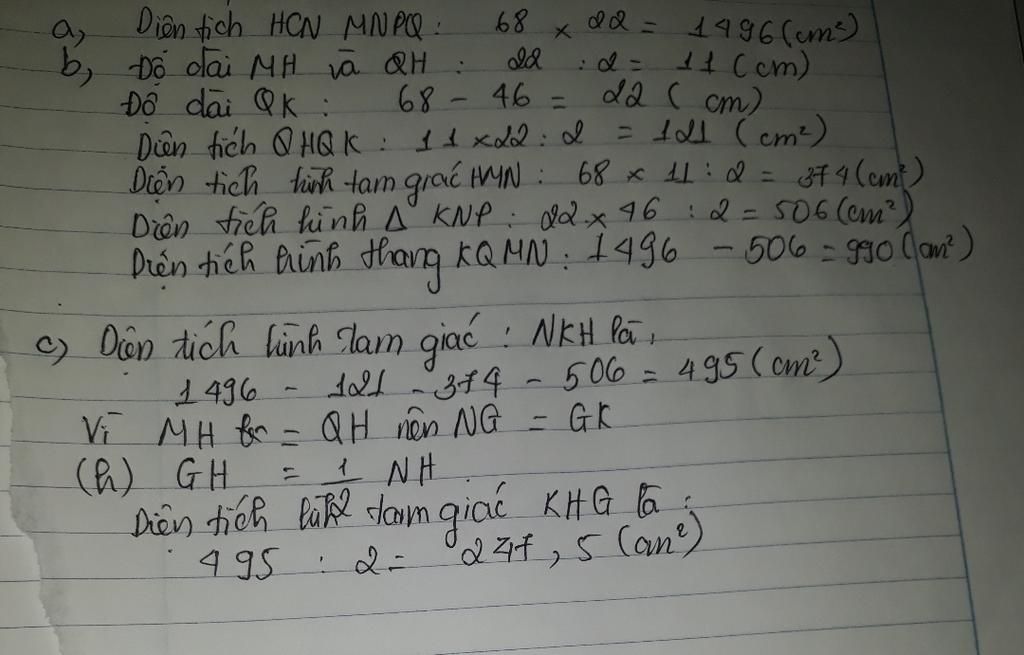 a, Diện tích HCN MNPQ: 68 x 22 = 1496 (cm²)
b, Độ dài MH và QH : 22 : 2 = 11 (cm)
Độ dài QK : 68 - 46 = 22 ( cm)
Diện tích QHQK : 11 x 22 : 2 = 121 (cm²)
Diện tích hình tam giác HMN : 68 x 11 : 2 = 374 (cm²)
Diện tích hình Δ KNP : 22 x 46 : 2 = 506 (cm²)
Diện tích hình thang KQMN : 1496 - 506 = 990 (cm²)
c) Diện tích hình tam giác : NKH là :
1496 - 121 - 374 - 506 = 495 (cm²)
Vì MH = QH nên NG = GK
(h) GH = 1/2 NH
Diện tích hình tam giác KHG là :
495 : 2 = 247,5 (cm²)